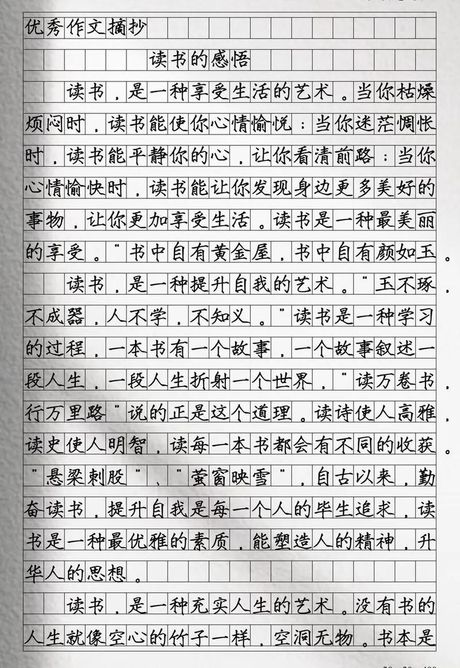 优秀作文摘抄
读书的感悟
读书，是一种享受生活的艺术。当你枯燥
烦闷时，读书能使你心情愉悦；当你迷茫惆怅
时，读书能平静你的心，让你看清前路；当你
心情愉快时，读书能让你发现身边更多美好的
事物，让你更加享受生活。读书是一种最美丽
的享受。“书中自有黄金屋，书中自有颜如玉。
读书，是一种提升自我的艺术。“玉不琢，
不成器，人不学，不知义。”读书是一种学习
的过程，一本书有一个故事，一个故事叙述一
段人生，一段人生折射一个世界，“读万卷书，
行万里路”说的正是这个道理。读诗使人高雅，
读史使人明智，读每一本书都会有不同的收获。
“悬梁刺股”、“萤窗映雪”，自古以来，勤
奋读书，提升自我是每一个人的毕生追求，读
书是一种最优雅的素质，能塑造人的精神，升
华人的思想。
读书，是一种充实人生的艺术。没有书的
人生就像空心的竹子一样，空洞无物。书本是